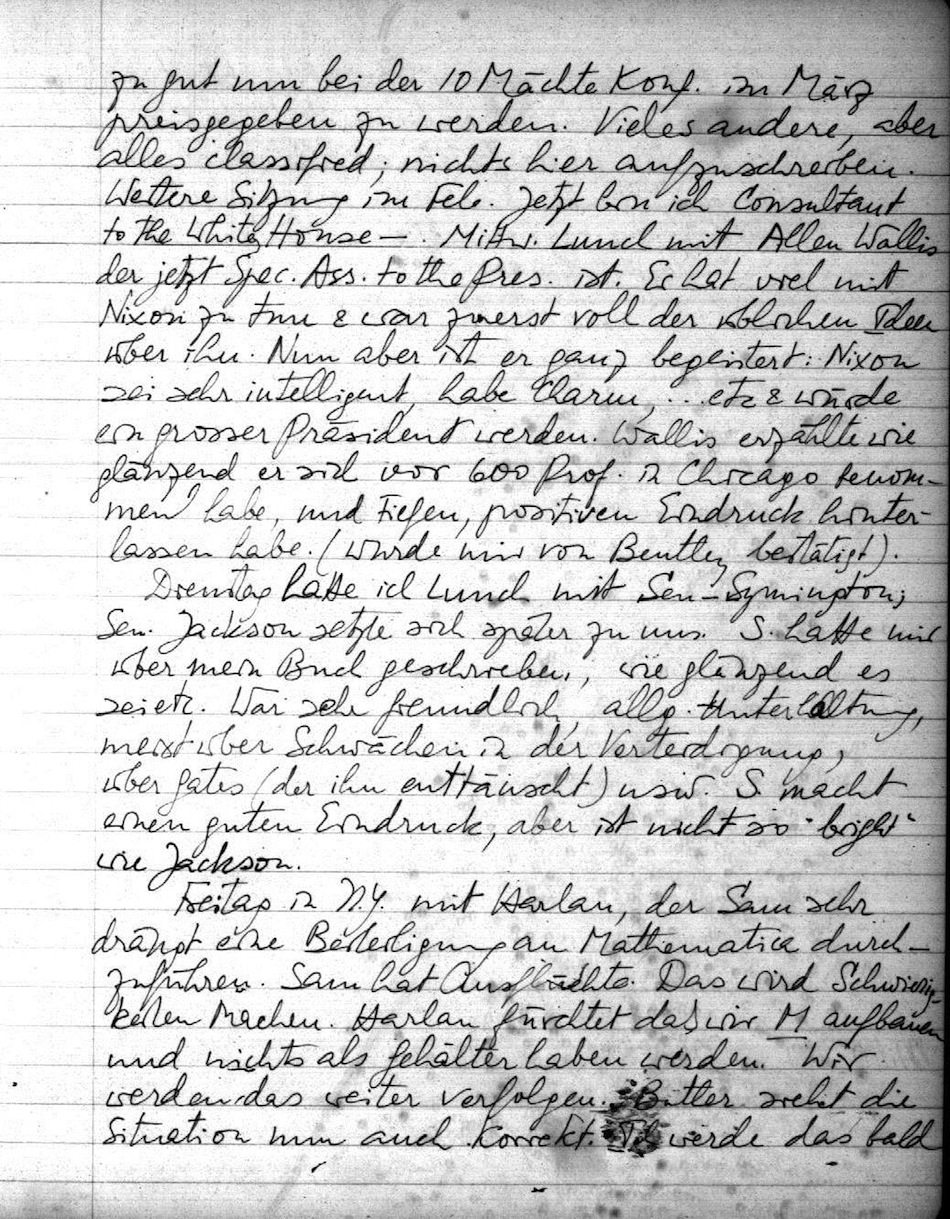 zu gut um bei der 10 Mächte Konf. im März
preisgegeben zu werden. Vieles andere, aber
alles classified; nichts hier aufzuschreiben.
Weitere Sitzung im Feb. Jetzt bin ich Consultant
to the White House —. Mittw. Lunch mit Allen Wallis
der jetzt Spec. Ass. to the Pres. ist. Er hat viel mit
Nixon zu tun & war zuerst voll der üblichen Ideen
über ihn. Nun aber ist er ganz begeistert: Nixon
sei sehr intelligent, habe Charm, ... etc & würde
ein grosser Präsident werden. Wallis erzählte wie
glänzend er sich vor 600 Prof. in Chicago benom-
men habe, und tiefen, positiven Eindruck hinter-
lassen habe. (Wurde mir von Bentley bestätigt).
Dienstag hatte ich Lunch mit Sen-Symington;
Sen. Jackson setzte sich später zu uns. S. hatte mir
über mein Buch geschrieben, wie glänzend es
sei etc. War sehr freundlich, allg. Unterhaltung,
meist über Schwächen in der Verteidigung,
über Gates (der ihn enttäuscht) usw. S. macht
einen guten Eindruck, aber ist nicht so "bright"
wie Jackson.
Freitag in N.Y. mit Harlan, der Sam sehr
drängt eine Beteiligung an Mathematica durch-
zuführen. Sam hat Ausflüchte. Das wird Schwierig-
keiten machen. Harlan fürchtet dass wir M aufbauen
und nichts als Gehälter haben werden. Wir
werden das weiter verfolgen. Butler sieht die
Situation nun auch korrekt. Ich werde das bald